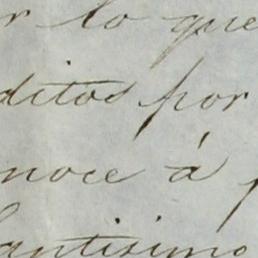 r lo que
ditos por
noce á
antisimo